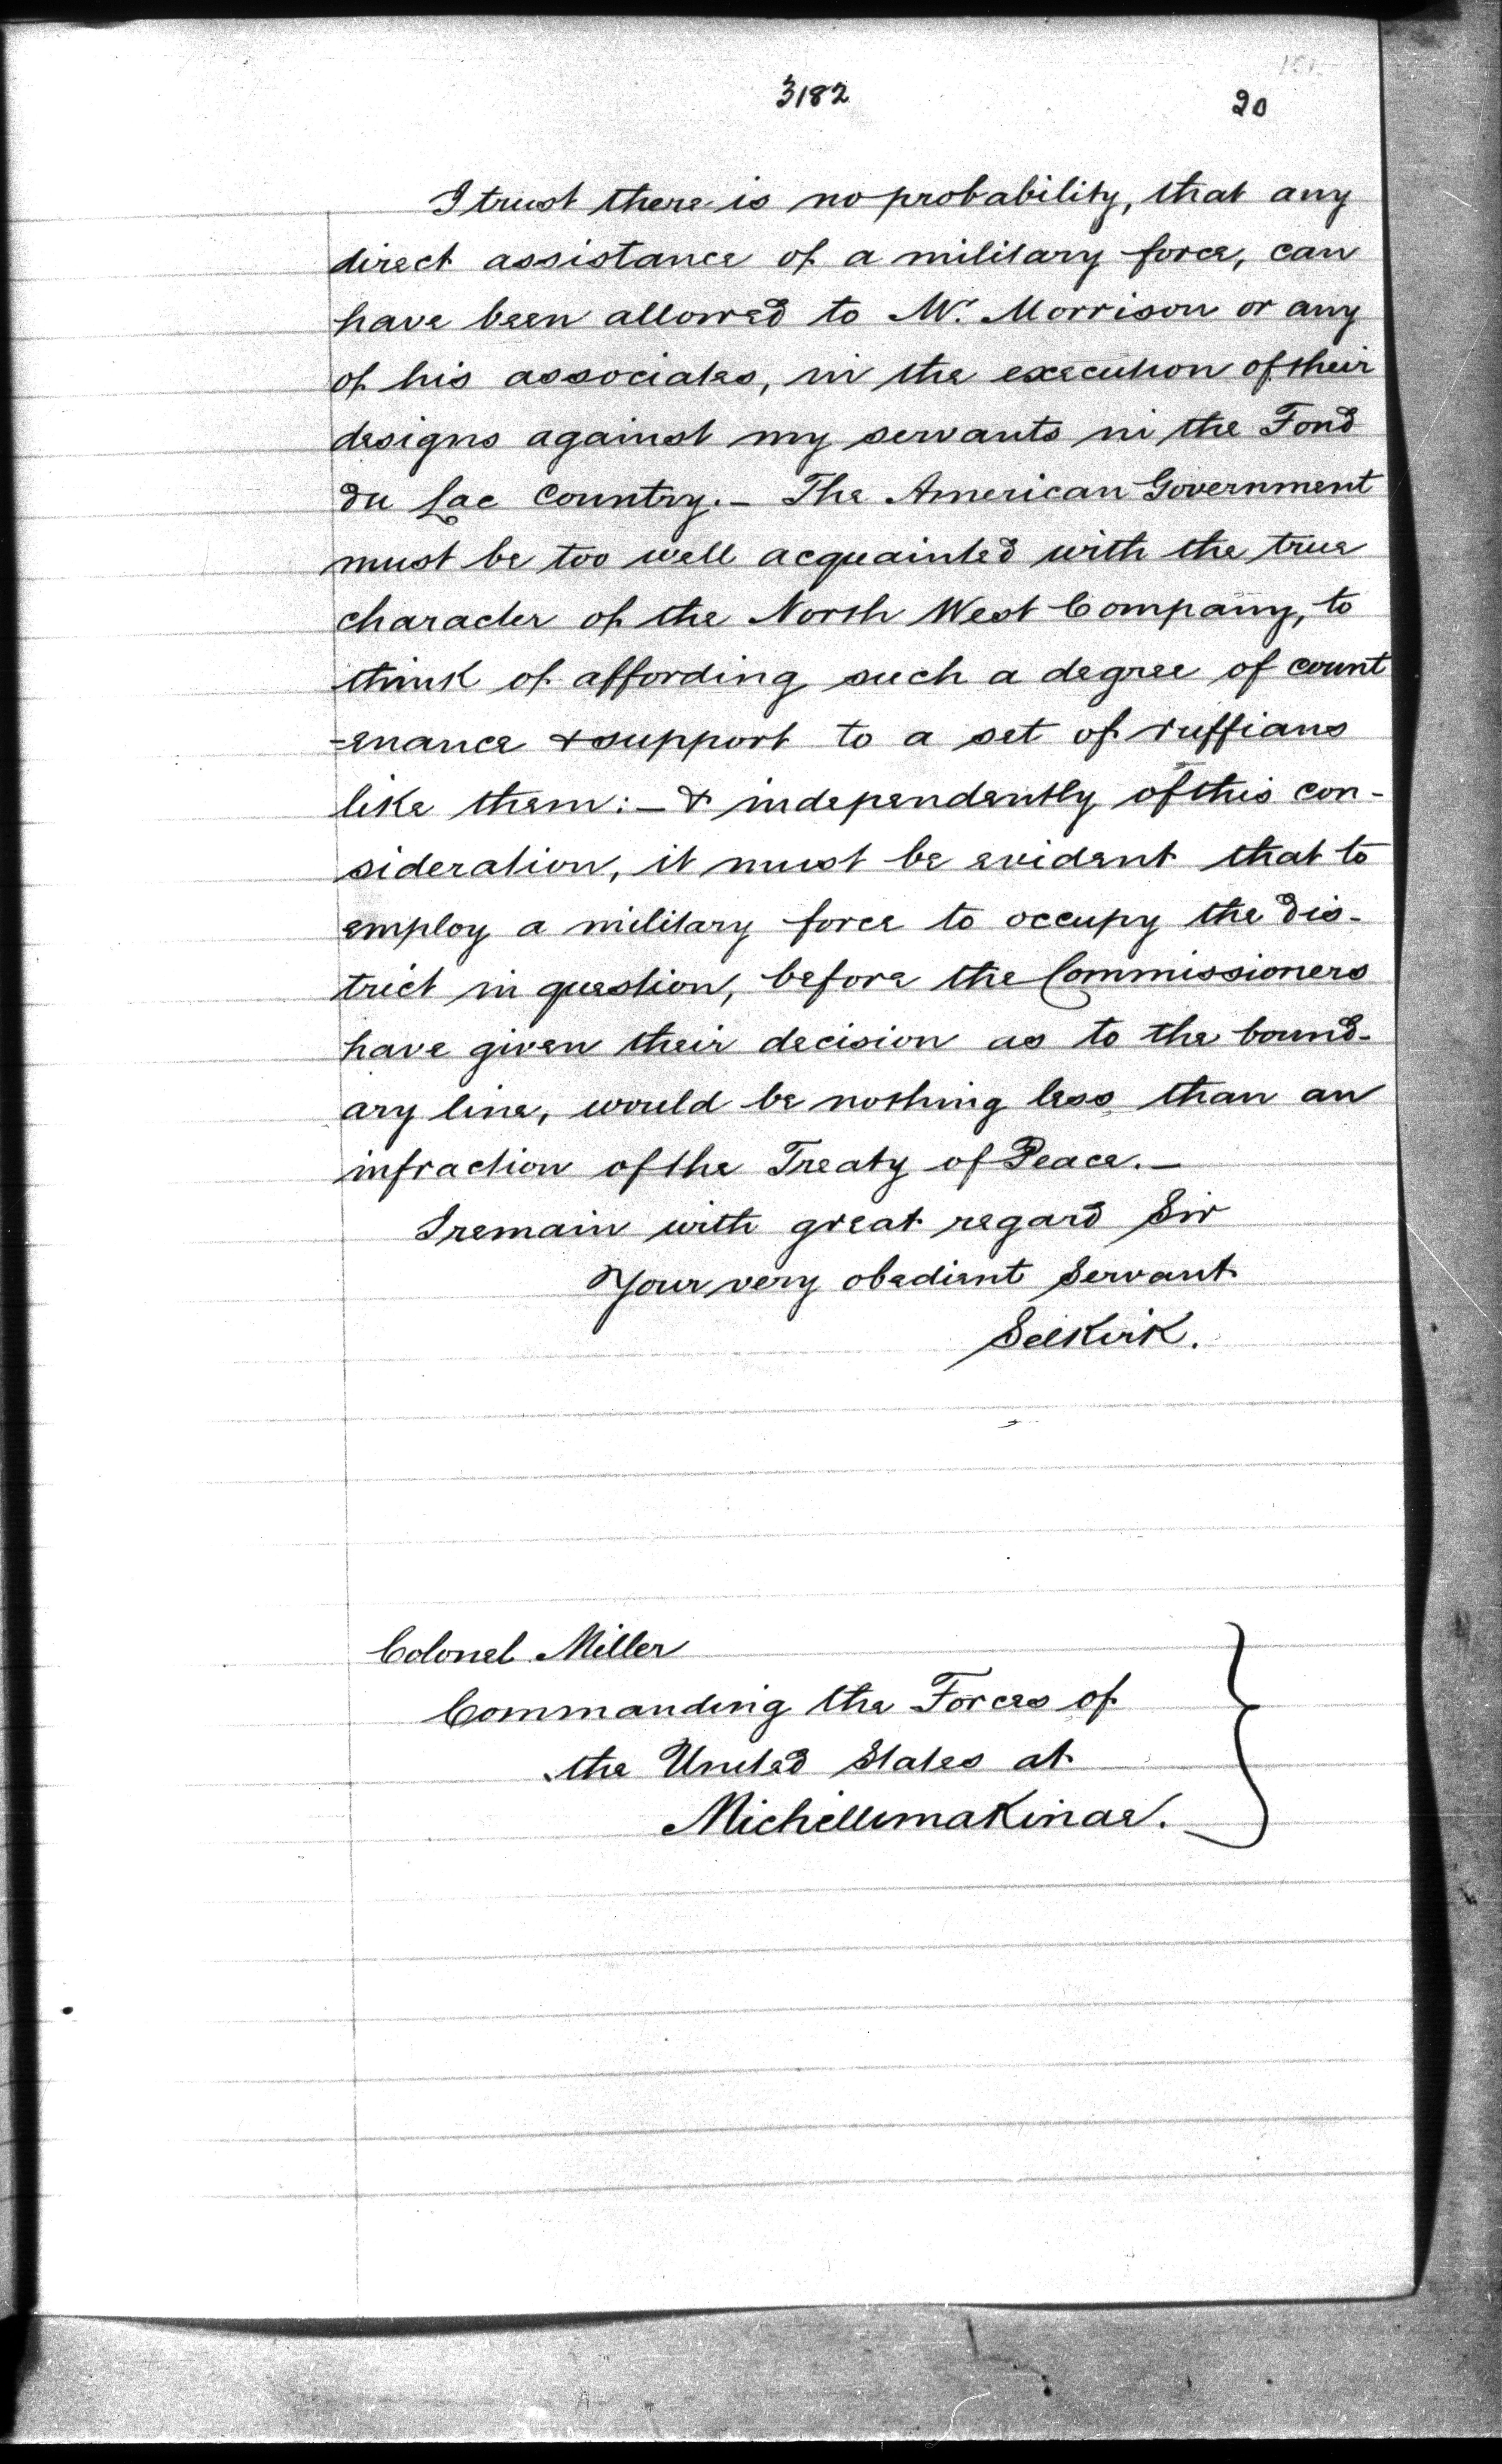 3182
20
I trust there is no probability, that any
direct assistance of a military force, can
have been allowed to Mr. Morrison or any
of his associates, in the execution of their
designs against my servants in the Fond
du Lac Country. — The American Government
must be too well acquainted with the true
character of the North West Company, to
think of affording such a degree of count
-enance & support to a set of ruffians
like them: — & independently of this con-
sideration, it must be evident that to
employ a military force to occupy the dis-
trict in question, before the Commissioners
have given their decision as to the bound-
ary line, would be nothing less than an
infraction of the Treaty of Peace. —
I remain with great regard Sir
Your very obedient Servant
Selkirk.
Colonel Miller
Commanding the Forces of
the United States at
Michillimakinac.